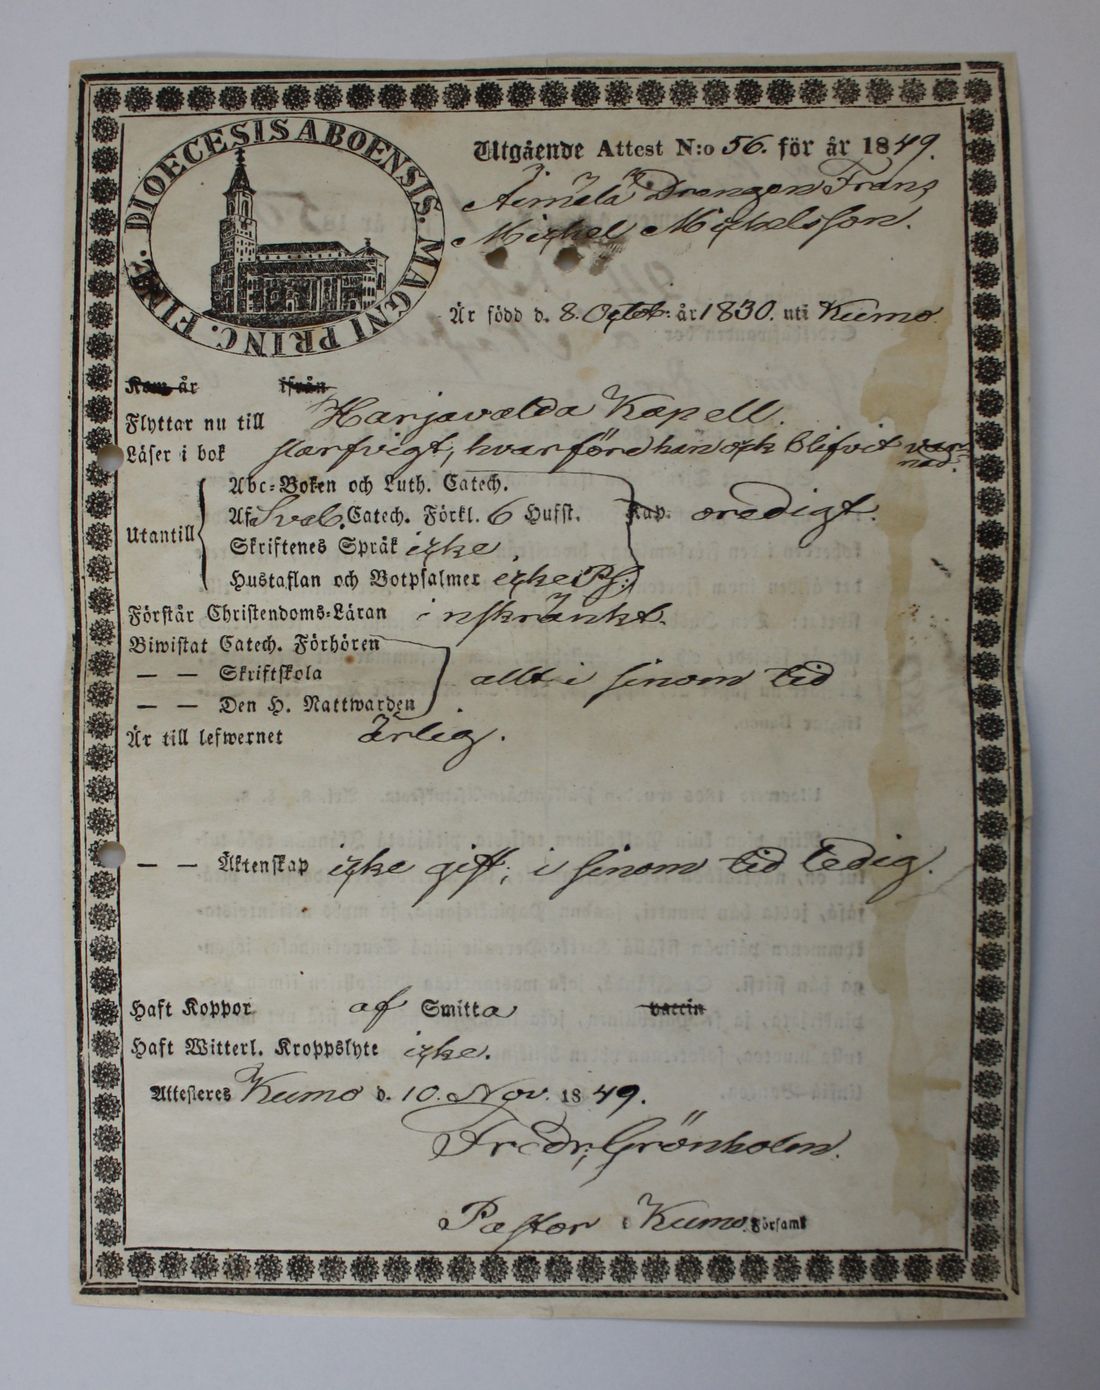 DIOECESIS ABOENSIS. MAGNI PRINC. FINL.
Utgående Attest N:o 56. för år 1849.
Äimälä Drengen Frans
Michel Mickelsson.
Är född d. 8. Octob. år 1830. uti Kumo
Kom år ifrån
Flyttar nu till Harjavalda Kapell.
Läser i bok slarfvigt, hvarföre han ock blifvit var-
nad.
Abc-Boken och Luth. Catech.
Utantill Af Sveb. Catech. Förkl. 6 Hufst. Kap. oredigt.
Skriftenes Språk icke
Hustaflan och Botpsalmer icke
Förstår Christendoms-Läran inskränkt.
Biwistat Catech. Förhören
— — Skriftskola allt i sinom tid
— — Den H. Nattwarden
Är till lefwernet ärlig.
— — Äktenskap icke gift, i sinom tid ledig.
Haft Koppor af Smitta vaccin
Haft Witterl. Kroppslyte icke.
Attesteres Kumo d. 10. Nov. 1849.
Fredr. Grönholm.
Pastor i Kumo Församl